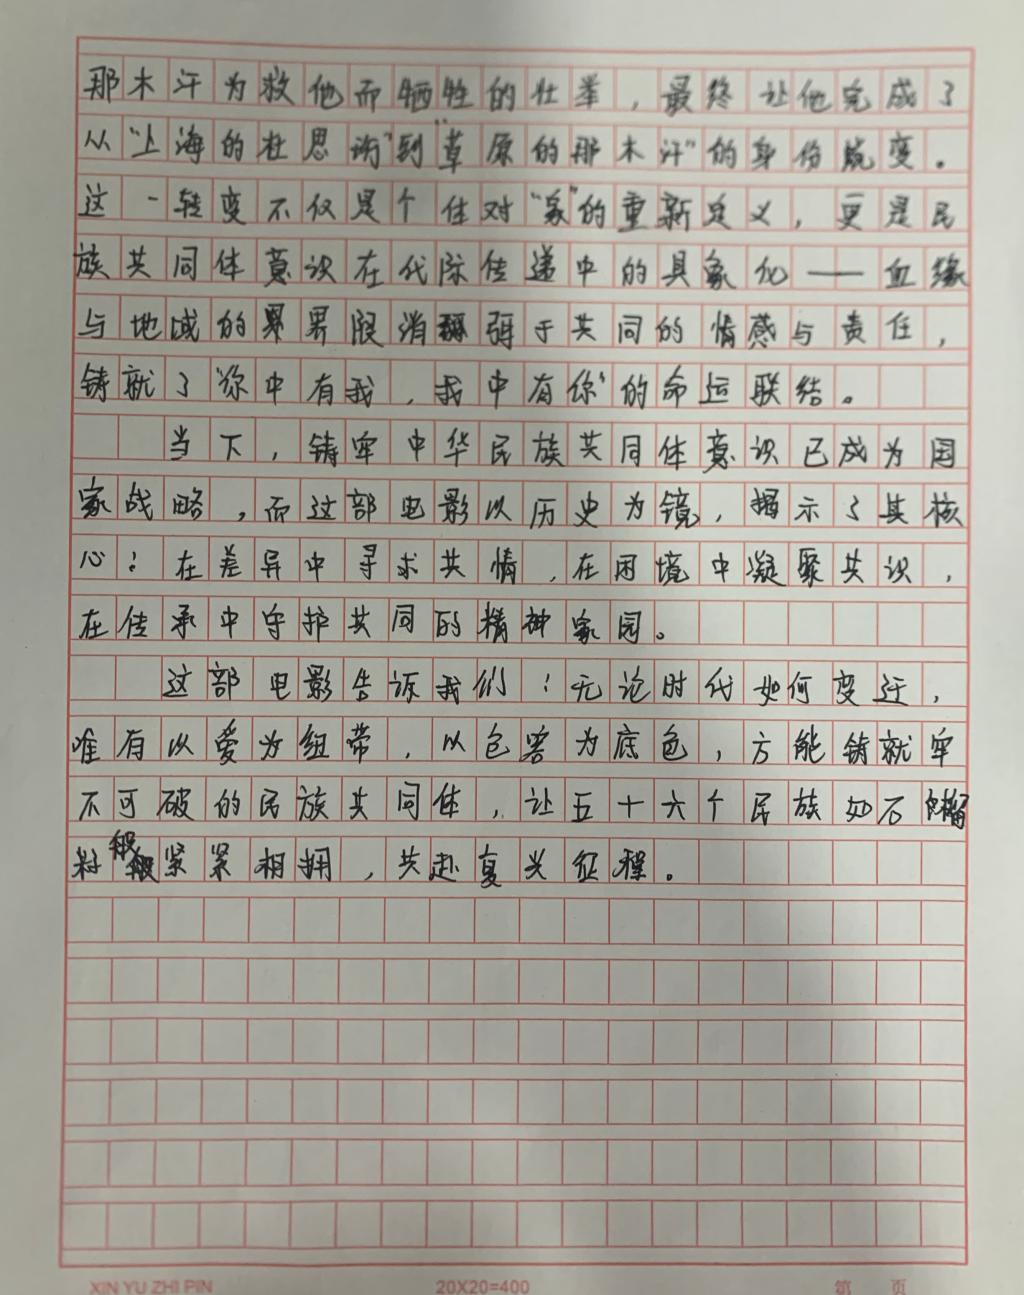 那木汗为救他而牺牲的壮举，最终让他完成了
从“上海的杜思珩”到“草原的那木汗”的身份蜕变。
这一转变不仅是个体对“家”的重新定义，更是民
族共同体意识在代际传递中的具象化——血缘
与地域的界限消弭于共同的情感与责任，
铸就了“你中有我，我中有你”的命运联结。
当下，铸牢中华民族共同体意识已成为国
家战略，而这部电影以历史为镜，揭示了其核
心：在差异中寻求共情，在困境中凝聚共识，
在传承中守护共同的精神家园。
这部电影告诉我们：无论时代如何变迁，
唯有以爱为纽带，以包容为底色，方能铸就牢
不可破的民族共同体，让五十六个民族如石榴
籽般紧紧相拥，共赴复兴征程。
XIN YU ZHI PIN 20X20=400 第 页